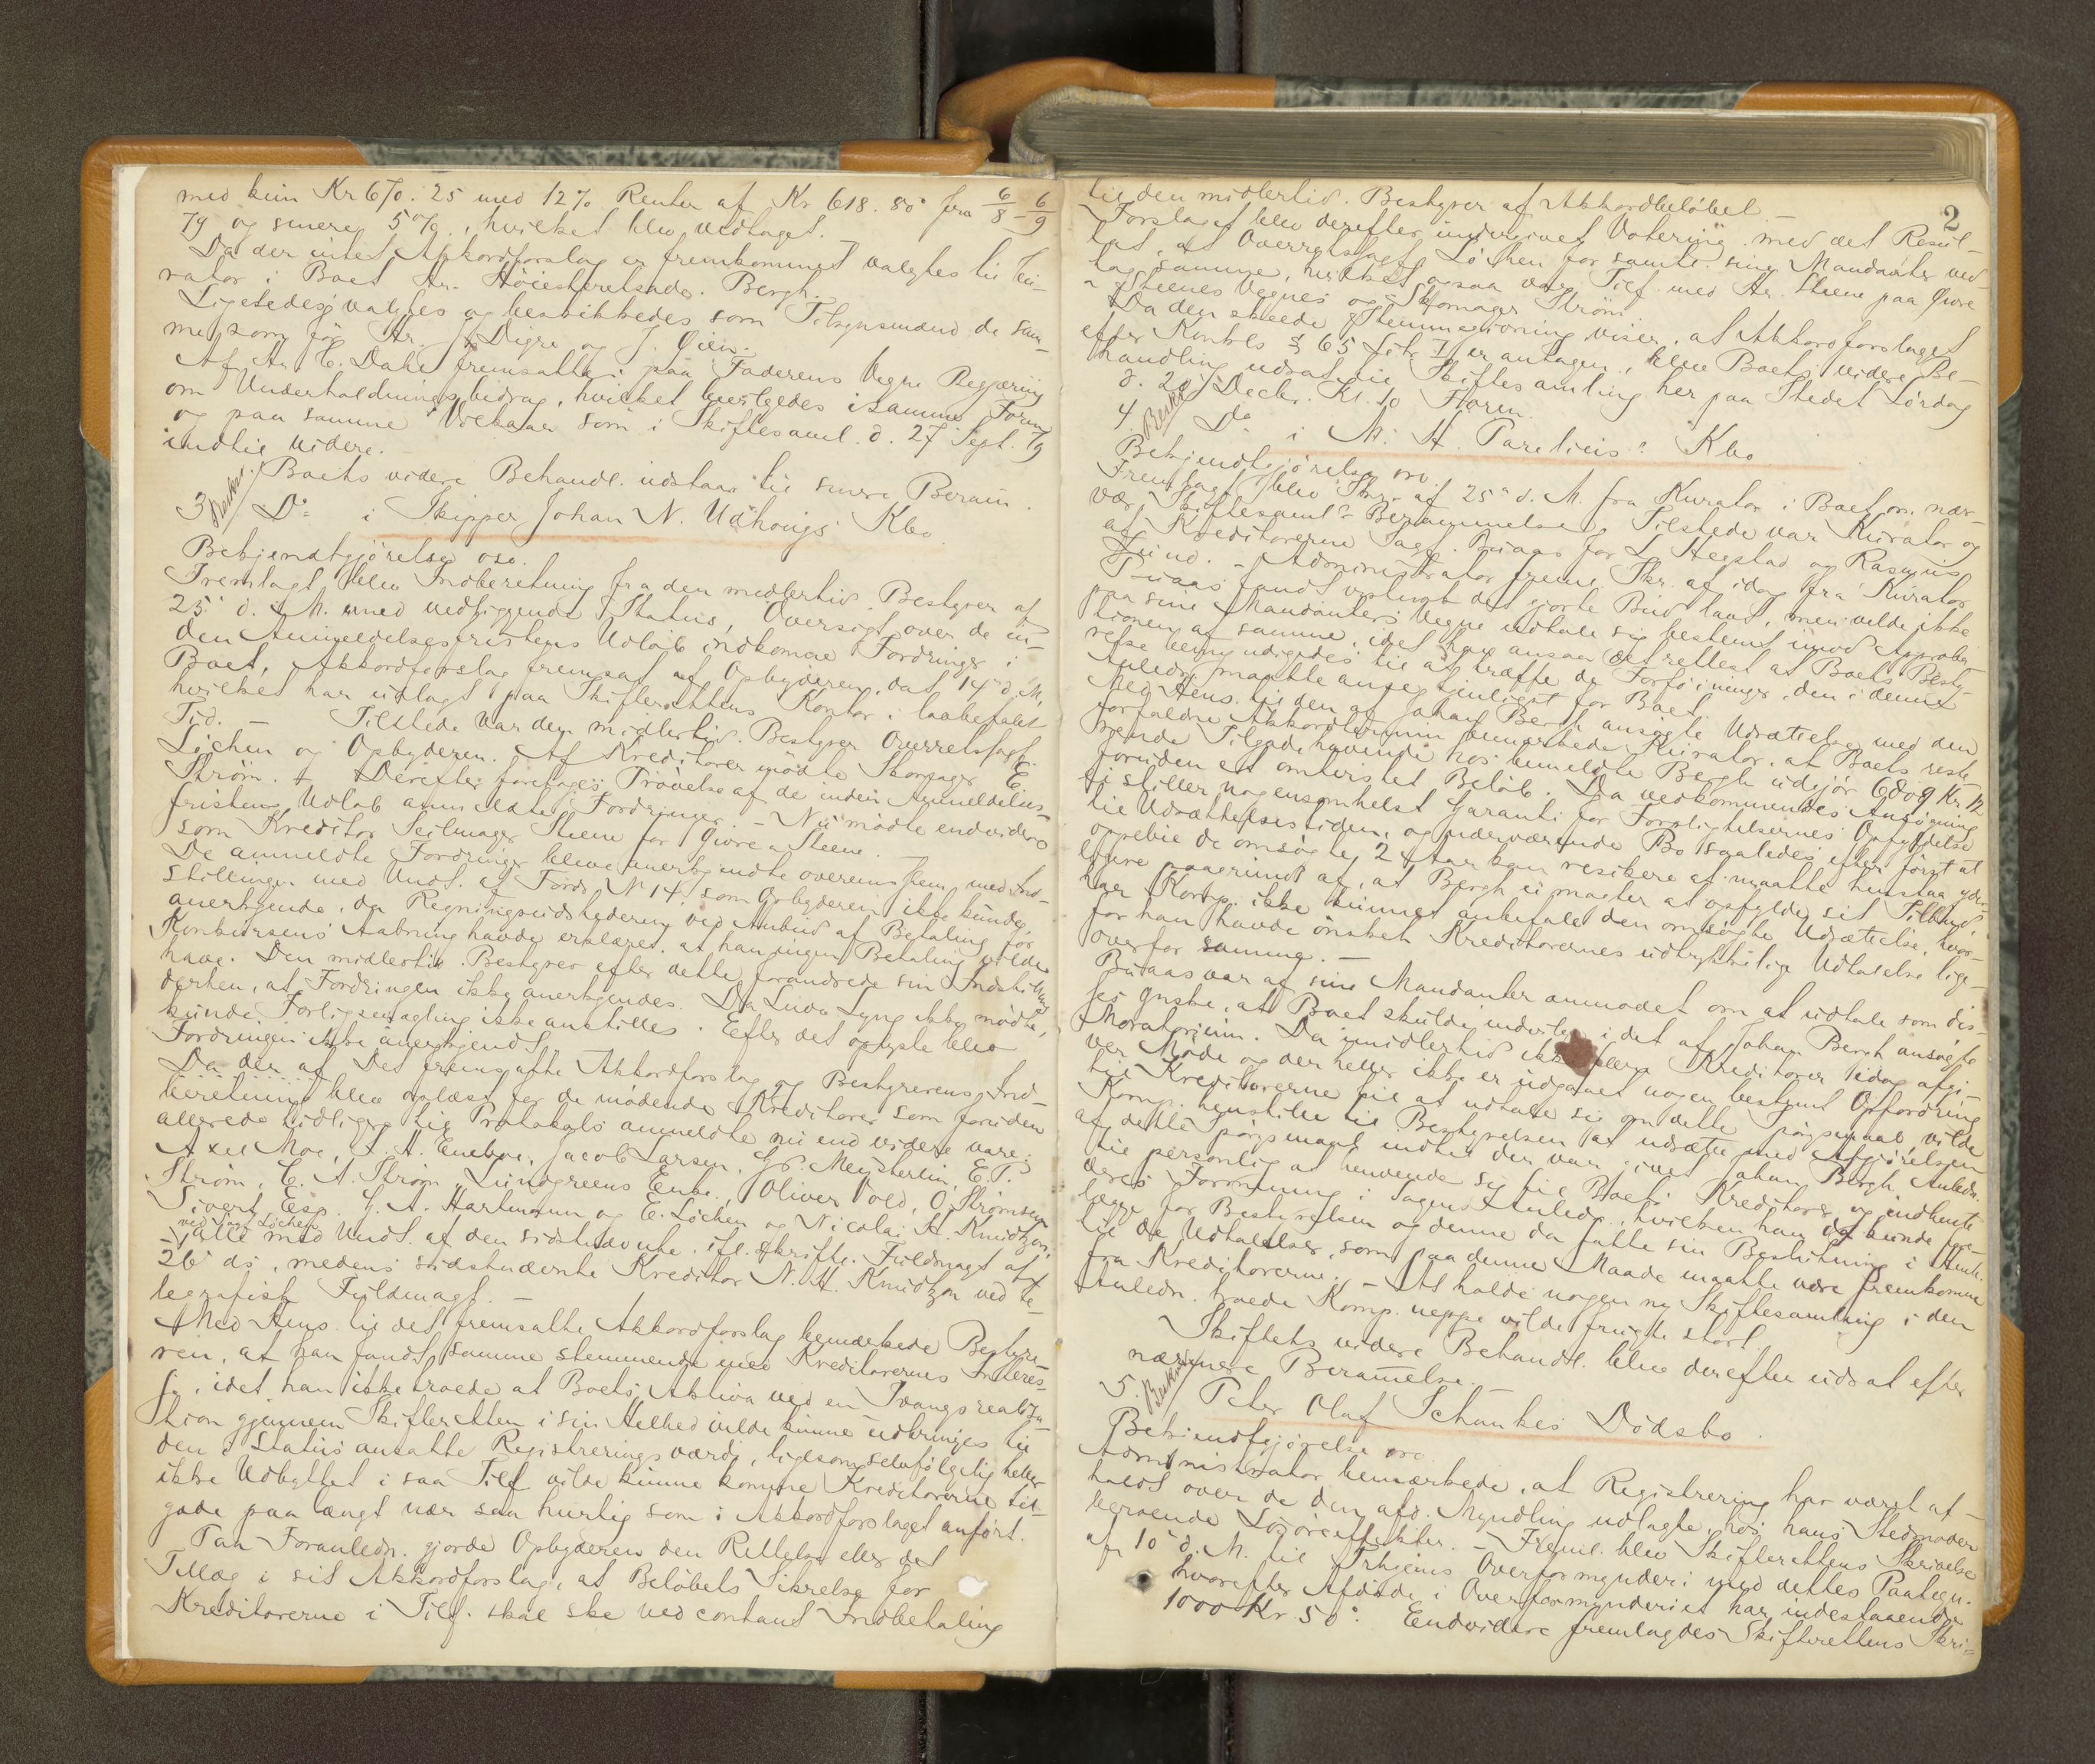 med kun Kr 670. 25 med 12% Renter af Kr 618. 80 fra 6/8 - 6/9
79 og senere 5%, hvilket blev vedtaget.
Da der intet Akkordforslag er fremkommet valgtes til Ku-
rator i Boet Hr. Höiesteretsadv. Bergh.
Ligeledes valgtes og beskikkedes som Tilsynsmænd de sam-
me som för Hr. Digre og J. Öien.
Af Hr C. Dahl fremsattes paa Faderens Vegne Begjæring
om Underholdningsbidrag, hvilket bevilgedes i samme Form
og paa samme Vilkaar som i Skiftesaml. d. 27 Sept. 79
indtil videre.
Boets videre Behandl. udstaar til senere Beram.
3. Do i Skipper Johan N. Udhougs Kbo.
Bekjendtgjörelse oso.
Fremlagt blev Indberetning fra den midlertid. Bestyrer af
25 d. M. med vedliggende Status, Oversigt over de in-
den Anmeldelsesfristens Udlöb indkomne Fordringer i
Boet, Akkordforslag fremsat af Opbyderen, dat. 14 d. M,
hvilket har udlagt paa Skifterettens Kontor i lovbefalet
Tid. — Tilstede var den midlertid. Bestyrer Overretssagf.
Löchen og Opbyderen. Af Kreditorer mödte Skomager E.
Ström. — Derefter foretoges Prövelse af de inden Anmeldelses-
fristens Udlöb anmeldte Fordringer. — Nu mödte endvidere
som Kreditor Seilmager Steene for Givre & Steene.
De anmeldte Fordringer bleve anerkjendte overensstem. med Ind-
stillingen med Undt. af Fordr. No 14, som Opbyderen ikke kunde
anerkjende, da Regningsudstederen ved Anbud af Betaling för
Konkursens Aabning havde erklæret, at han ingen Betaling vilde
have. Den midlertid. Bestyrer efter dette forandrede sin Indstilling
derhen, at Fordringen ikke anerkjendes. Da Linda Lyng ikke mödte,
kunde Forligsmægling ikke anstilles. Efter det oplyste blev
Fordringen ikke anerkjendt.
Da der af Det fremsatte Akkordforslag og Bestyrerens Ind-
beretning blev oplæst for de mödende Kreditorer som foruden
allerede tidligere til Protokols anmeldte nu end videre vare:
Axel Moe, J. H. Eneboe, Jacob Larsen, G. Meisterlin, E. P.
Ström, C. A. Ström, Lundgreens Enke, Oliver Vold, O. Strömsem
Sivert Esp. G. A. Hartmann og E. Löchen og Nicolai H. Knudtzon,
ved Sagf. Löchen
— alle med Undt. af den sidstnævnte ifl. skriftl. Fuldmagt af
26 ds, medens sidstnævnte Kreditor N. H. Knudtzon ved te-
legrafisk Fuldmagt. —
Med Hens. til det fremsatte Akkordforslag bemærkede Besty-
ren, at han fandt samme stemmende med Kreditorernes Interes-
se, idet han ikke troede at Boets Aktiva ved en Tvangsrealisa-
tion gjennem Skifteretten i sin Helhed vilde kunne udbringes til
den i Status ansatte Registreringsværdi, ligesom selvfölgelig heller
ikke Udbyttet i saa Tilf. vilde kunne komme Kreditorerne til-
gode paa langt nær saa hurtig som i Akkordforslaget anfört.
Paa Foranledn. gjorde Opbyderen den Rettelse eller det
Tillæg i sit Akkordforslag, at Belöbets Sikrelse for
Kreditorerne i Tilf. skal ske ved contant Indbetaling
2
til den midlertid. Bestyrer af Akkordbelöbet. —
Forslaget blev derefter undergivet Votering med det Resul-
tat, at Overretssagf. Löchen for samtl. sine Mandanter ved-
tog samme, hvilket ogsaa var Tilf. med Hr. Steene paa Givre
& Steenes Vegne og Skomager Ström.
Da den skeede Stemmegivning viser, at Akkordforslaget
efter Konksl. § 65 er antagen, blev Boets videre Be-
handling udsat til Skiftesamling her paa Stedet Lördag
d. 20 Decbr. Kl. 10 Form.
4. Do i M. H. Parelius' Kbo
Bekjendtgjörelse oso.
Fremlagt blev Skr. af 25 d. M. fra Kurator i Boet om nær-
vær. Skiftesaml. Berammelse. Tilstede var Kurator og
af Kreditorerne Sagf. Buaas for L. Hegstad og Rasmus
Lund. — Administrator freml. Skr. af idag fra Kurator.
Buaas fandt vistnok det gjorte Bud lavt, men vilde ikke
paa sine Mandanters Vegne udtale sig bestemt imod Approba-
tionen af samme, idet han ansaa det rettest at Boets Besty-
relse bemyndigedes til at træffe de Forföininger, den i denne
Anledn. maatte anse tjenligst for Boet.
Med Hens. til den af Johan Bergh ansögte Udsættelse med den
forfaldne Akkordtermin bemærkede Kurator, at Boets reste-
rende Tilgodehavende hos bemeldte Bergh udgjör 6809 Kr. 12
foruden et omtvistet Belöb. Da vedkommendes Ansögning
ei stiller nogensomhelst Garanti for Forpligtelsernes Opfyldelse
til Udsættelsestiden, og nærværende Bo saaledes efter först at
oppebie de omsögte 2 Aar kan resikere at maatte henstaa yder-
ligere paagrund af, at Bergh ei magter at opfylde sit Tilbud,
har Komp. ikke kunnet anbefale den omsögte Udsættelse, hvor-
for han havde önsket Kreditorernes udtrykkelige Udtalelse lige-
overfor samme. —
Buaas var af sine Mandanter anmodet om at udtale som dis-
ses Önske, at Boet skulde indvilge i det af Johan Bergh ansögte
Moratorium. Da imidlertid ikke flere Kreditorer idag afgi-
ver Möde og der heller ikke er udgaaet nogen bestemt Opfordring
til Kreditorerne til at udtale sig om dette Spörgsmaal, vilde
Komp. henstille til Bestyrelsen at udsætte med Afgjörelsen
af dette Spörgsmaal indtil der var givet Johan Bergh Anledn.
til personlig at henvende sig til Boets Kreditorer og indhente
deres Formening i Sagens Anledn., hvilken han da kunde fore-
lægge for Bestyrelsen og denne da fatte sin Beslutning i Henh.
til de Udtalelser, som paa denne Maade maatte være fremkomne
fra Kreditorerne. — At holde nogen ny Skiftesamling i den
Anledn. troede Komp. neppe vilde frugte stort.
Skiftets videre Behandl. blev derefter udsat efter
nærmere Beramelse.
5. Peter Olaf Schankes Dödsbo.
Bekjendtgjörelse oso
Administrator bemærkede, at Registrering har været af-
holdt over de den afd. Myndling udlagte, hos hans Stedmoder
beroende Lösöreeffekter. — Freml. blev Skifterettens Skrivelse
af 10 d. M. til Trhjems Overformynderi med dettes Paategn.
hvorefter Afdöde i Overformynderiet har indestaaende
1000 Kr 50. Endvidere fremlagdes Skifterettens Skri-